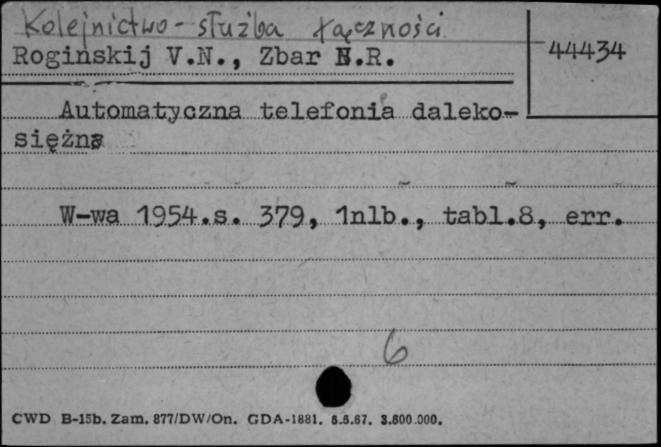 Kolejnictwo - służba łączności
Roginskij V.N., Zbar N.R.
44434
Automatyczna telefonia daleko-
siężna
W-wa 1954.s. 379, 1nlb., tabl.8, err.
6
CWD B-15b. Zam. 877/DW/On. GDA-1881. 5.5.67. 3.600.000.